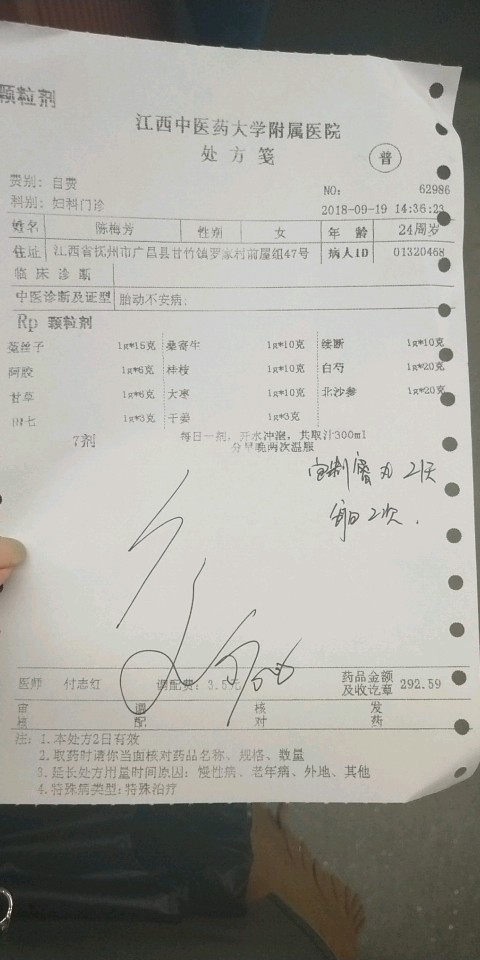 颗粒剂
江西中医药大学附属医院
处方笺 普
费别: 自费
NO: 62986
科别: 妇科门诊 2018-09-19 14:36:23
姓名 陈梅芳 性别 女 年龄 24周岁
住址 江西省抚州市广昌县甘竹镇罗家村前屋组47号 病人ID 01320468
临床诊断
中医诊断及证型 胎动不安病;
Rp 颗粒剂
菟丝子 1g*15克 桑寄生 1g*10克 续断 1g*10克
阿胶 1g*6克 桂枝 1g*10克 白芍 1g*20克
甘草 1g*6克 大枣 1g*10克 北沙参 1g*20克
田七 1g*3克 干姜 1g*3克
7剂 每日一剂, 开水冲泡, 共取汁300ml
分早晚两次温服
2次
医师 付志红 调配费: 3.5元 药品金额及收讫章 292.59
审核 调配 核对 发药
注: 1.本处方2日有效
2.取药时请你当面核对药品名称、规格、数量
3.延长处方用量时间原因: 慢性病、老年病、外地、其他
4.特殊病类型: 特殊治疗